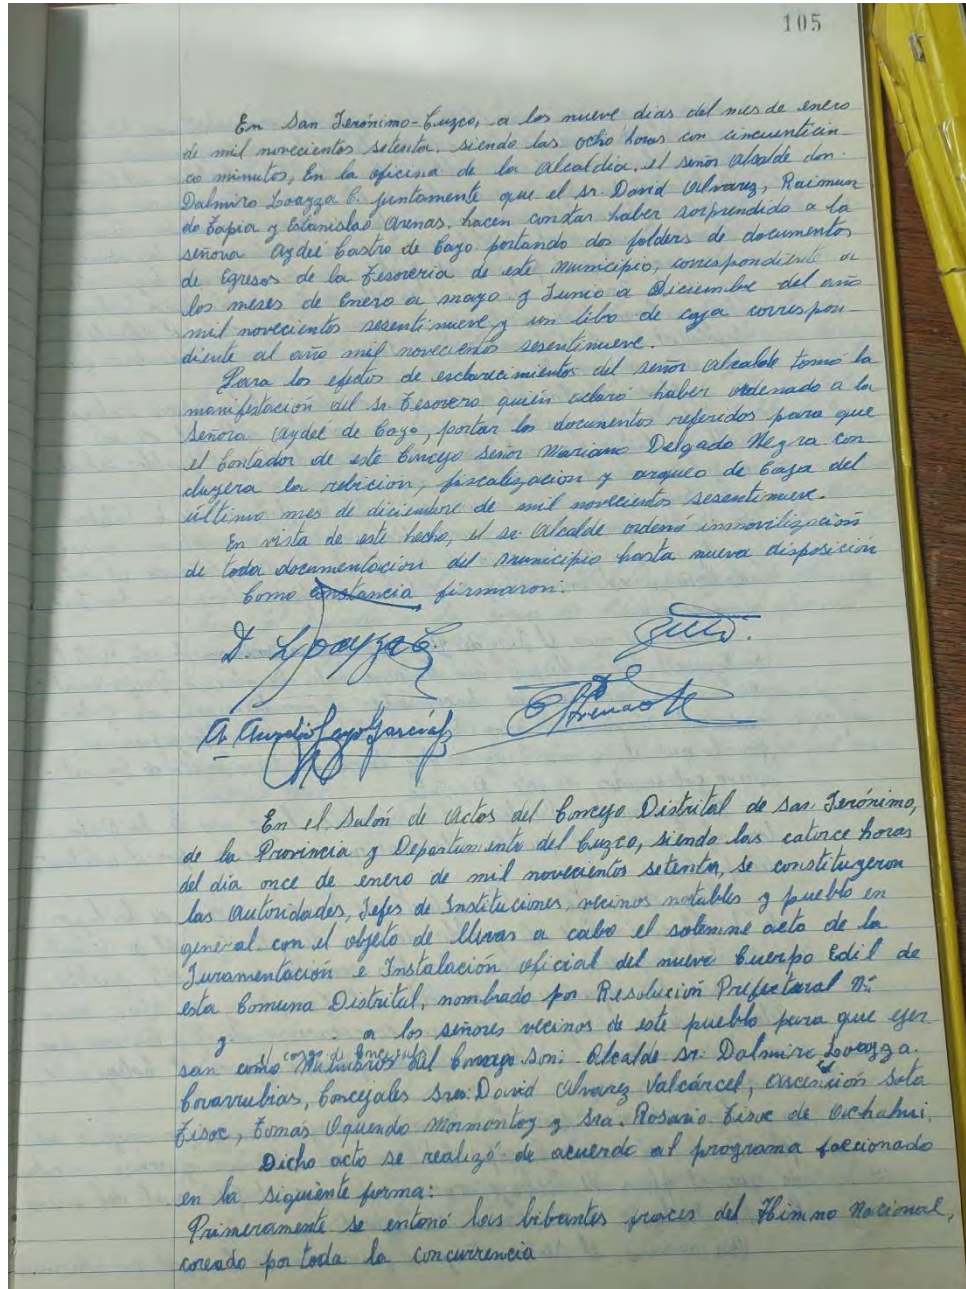 105
En San Jerónimo-Cuzco, a los nueve dias del mes de enero
de mil novecientos setenta, siendo las ocho horas con cincuenticin
co minutos, En la oficina de la Alcaldia, el señor Alcalde don
Dalmiro Loayza C. juntamente que el sr. David Alvarez, Raimun
do Tapia y Estanislao Arenas, hacen constar haber sorprendido a la
señora Aydeé Castro de Cayo portando dos folders de documentos
de Egresos de la Tesoreria de este Municipio, correspondiente a
los meses de Enero a mayo y Junio a Diciembre del año
mil novecientos sesentinueve, y un libro de caja correspon
diente al año mil novecientos sesentinueve.
Para los efectos de esclarecimientos del señor Alcalde tomó la
manifestación del sr. Tesorero quién aclaró haber ordenado a la
Señora Aydeé de Cayo, portar los documentos referidos para que
el Contador de este Concejo Señor Mariano Delgado Negra con
cluyera la rebicion, fiscalización y arqueo de Caja del
último mes de diciembre de mil novecientos sesentinueve.
En vista de este hecho, el sr. Alcalde ordenó inmovilización
de toda documentación del Municipio hasta nueva disposición
Como constancia firmaron:
D. Loayza C.
A. Aurelio Cayo García
E Arenas
En el Salón de Actos del Concejo Distrital de San Jerónimo,
de la Provincia y Departamento del Cuzco, siendo las catorce horas
del día once de enero de mil novecientos setenta, se constituyeron
las Autoridades, Jefes de Instituciones, vecinos notables y pueblo en
general, con el objeto de llevar a cabo el solemne acto de la
Juramentación e Instalación oficial del nuevo Cuerpo Edil de
esta Comuna Distrital, nombrado por Resolución Prefectural Nº
y a los señores vecinos de este pueblo para que ejer
san como Miembros del Concejo son: Alcalde sr. Dalmiro Loayza
Covarrubias, Concejales Sres. David Alvarez Valcárcel, Ascención Suta
Tisoc, Tomás Oquendo Mormontoy y Sra. Rosario Tisoc de
Dicho acto se realizó de acuerdo al programa faccionado
en la siguiente forma:
Primeramente se entonó las bibantes del Himno Nacional,
coreado por toda la concurrencia